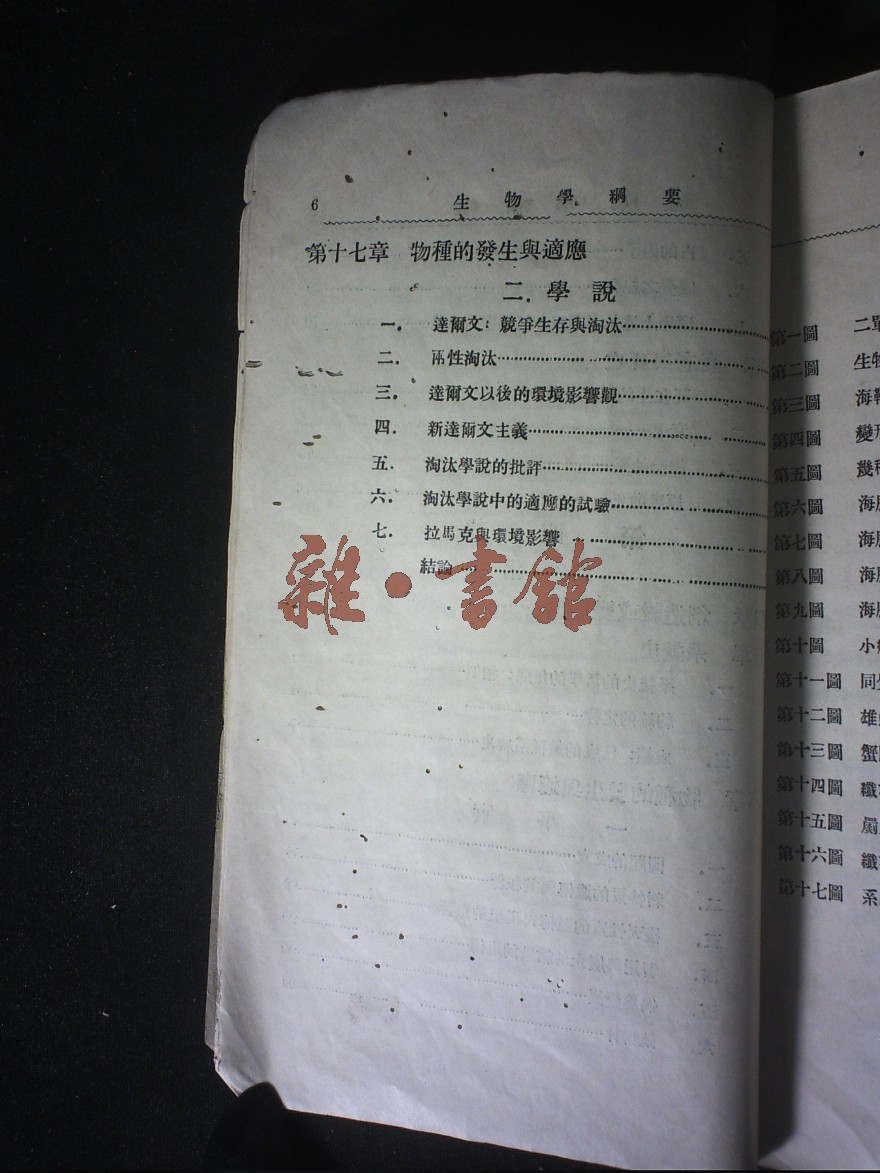 6 生物學綱要
第十七章 物種的發生與適應
二. 學說
一. 達爾文: 競爭生存與淘汰
二. 兩性淘汰
三. 達爾文以後的環境影響觀
四. 新達爾文主義
五. 淘汰學說的批評
六. 淘汰學說中的適應的試驗
七. 拉馬克與環境影響
結論
雜·書館
第一圖 二單
第二圖 生物
第三圖 海
第四圖 變形
第五圖 幾種
第六圖 海
第七圖 海
第八圖 海
第九圖 海
第十圖 小
第十一圖 同
第十二圖 雄
第十三圖 蟹
第十四圖 纖
第十五圖
第十六圖 纖
第十七圖 系